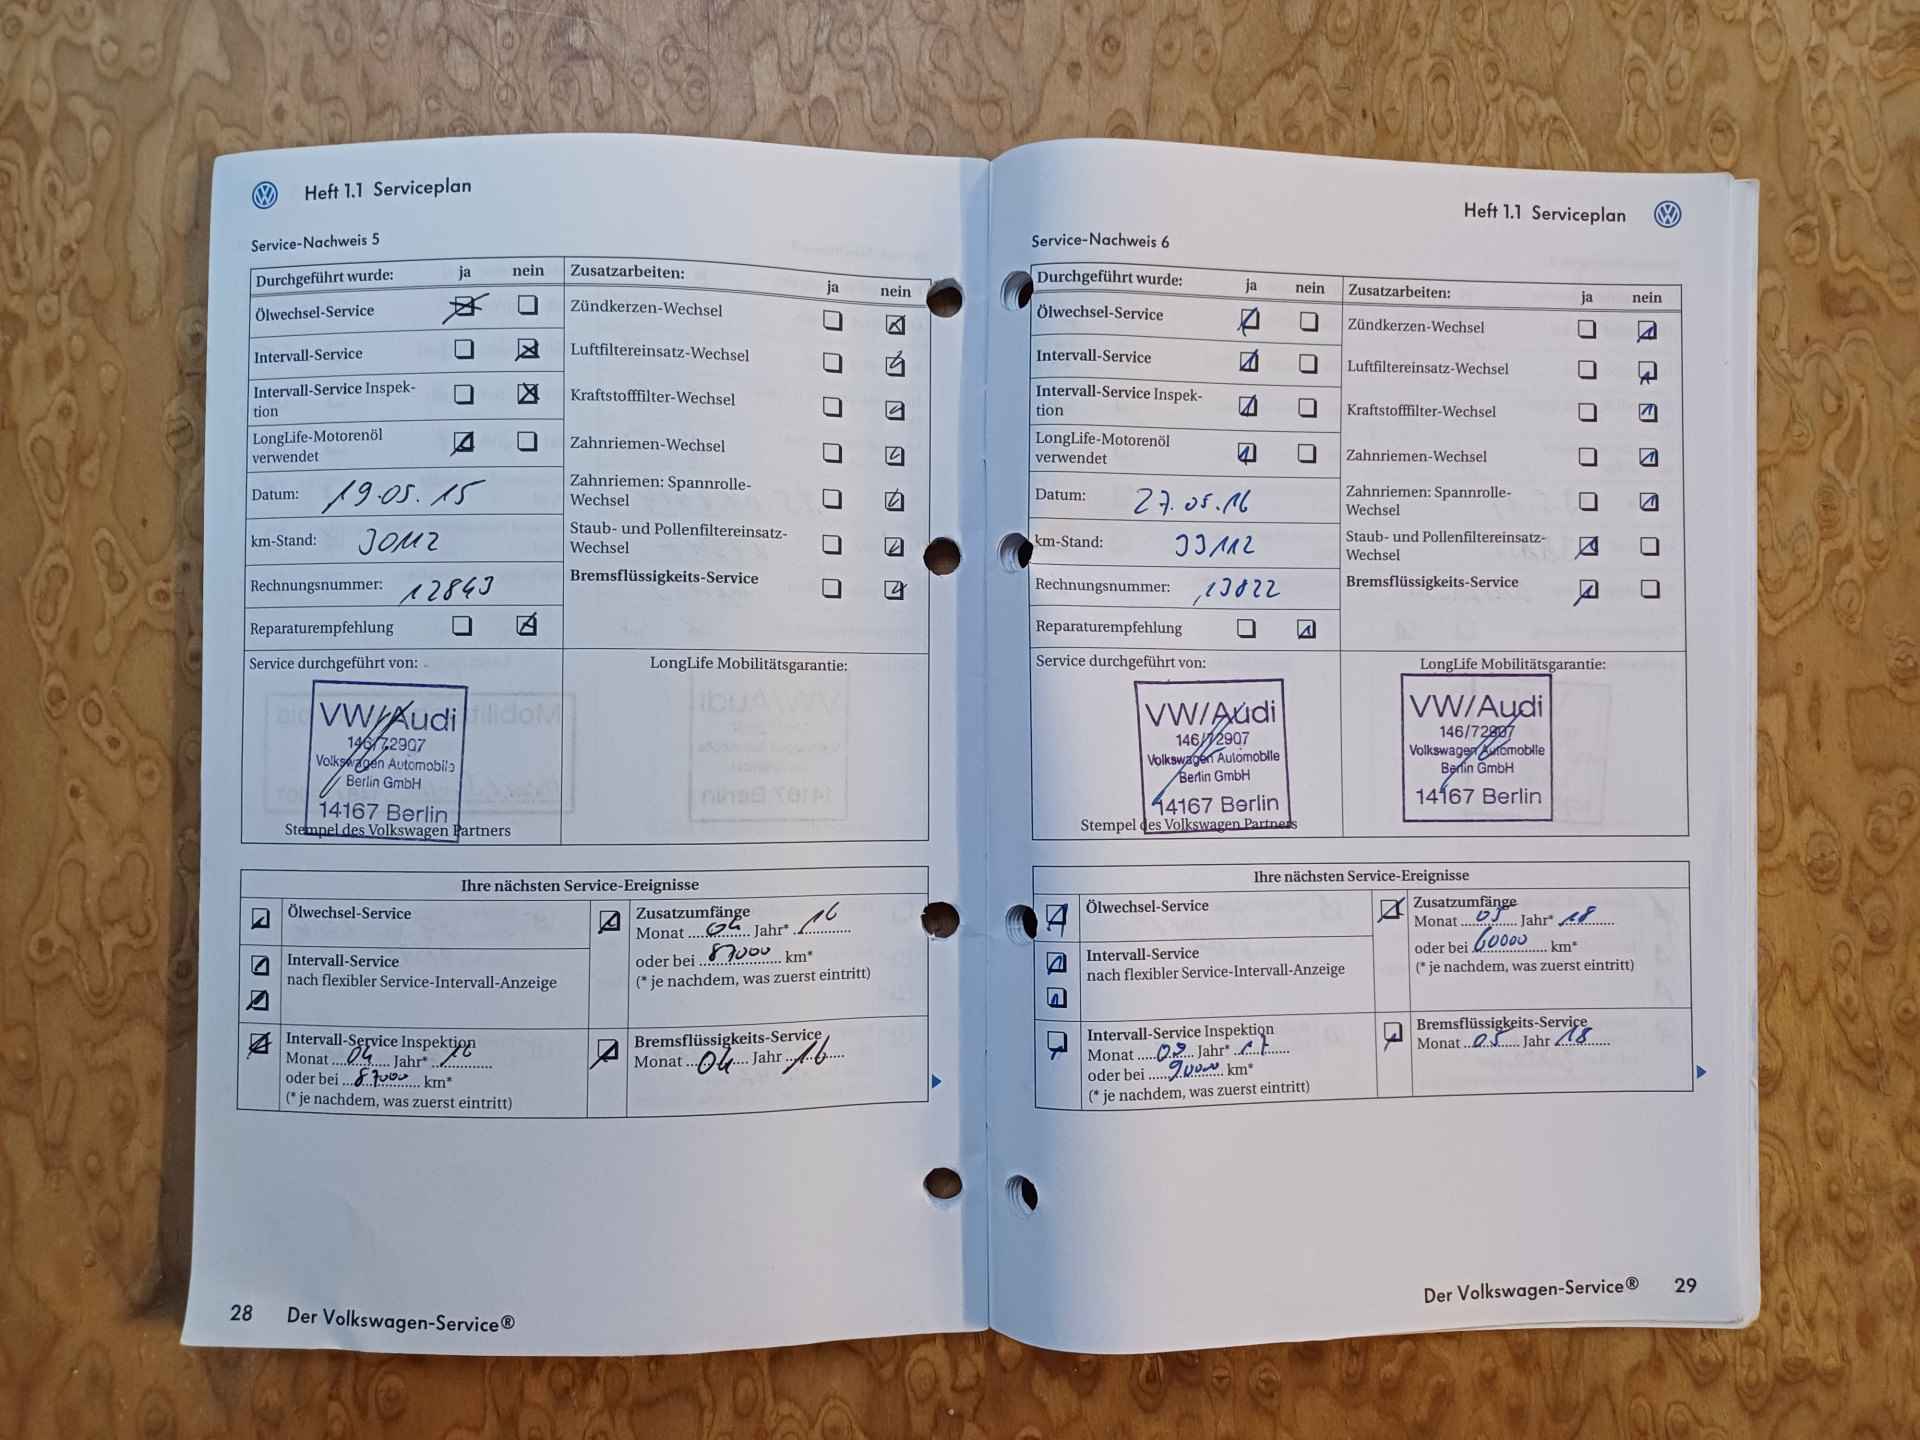 Heft 1.1 Serviceplan
Service-Nachweis 5
Durchgeführt wurde: ja nein
Ölwechsel-Service
Intervall-Service
Intervall-Service Inspek-
tion
LongLife-Motorenöl
verwendet
Datum: 19.05.15
km-Stand: 30112
Rechnungsnummer: 12843
Reparaturempfehlung
Zusatzarbeiten: ja nein
Zündkerzen-Wechsel
Luftfiltereinsatz-Wechsel
Kraftstofffilter-Wechsel
Zahnriemen-Wechsel
Zahnriemen: Spannrolle-
Wechsel
Staub- und Pollenfiltereinsatz-
Wechsel
Bremsflüssigkeits-Service
Service durchgeführt von:
VW/Audi
146/72907
Volkswagen Automobile
Berlin GmbH
14167 Berlin
Stempel des Volkswagen Partners
LongLife Mobilitätsgarantie:
Ihre nächsten Service-Ereignisse
Ölwechsel-Service
Intervall-Service
nach flexibler Service-Intervall-Anzeige
Intervall-Service Inspektion
Monat 04 Jahr* 16
oder bei 87000 km*
(* je nachdem, was zuerst eintritt)
Zusatzumfänge
Monat 04 Jahr* 16
oder bei 87000 km*
(* je nachdem, was zuerst eintritt)
Bremsflüssigkeits-Service
Monat 04 Jahr 16
28 Der Volkswagen-Service®
Heft 1.1 Serviceplan
Service-Nachweis 6
Durchgeführt wurde: ja nein
Ölwechsel-Service
Intervall-Service
Intervall-Service Inspek-
tion
LongLife-Motorenöl
verwendet
Datum: 27.05.16
km-Stand: 33112
Rechnungsnummer: 13822
Reparaturempfehlung
Zusatzarbeiten: ja nein
Zündkerzen-Wechsel
Luftfiltereinsatz-Wechsel
Kraftstofffilter-Wechsel
Zahnriemen-Wechsel
Zahnriemen: Spannrolle-
Wechsel
Staub- und Pollenfiltereinsatz-
Wechsel
Bremsflüssigkeits-Service
Service durchgeführt von:
VW/Audi
146/72907
Volkswagen Automobile
Berlin GmbH
14167 Berlin
Stempel des Volkswagen Partners
LongLife Mobilitätsgarantie:
VW/Audi
146/72907
Volkswagen Automobile
Berlin GmbH
14167 Berlin
Ihre nächsten Service-Ereignisse
Ölwechsel-Service
Intervall-Service
nach flexibler Service-Intervall-Anzeige
Intervall-Service Inspektion
Monat Jahr* 17
oder bei 90000 km*
(* je nachdem, was zuerst eintritt)
Zusatzumfänge
Monat 05 Jahr* 18
oder bei 60000 km*
(* je nachdem, was zuerst eintritt)
Bremsflüssigkeits-Service
Monat 05 Jahr 18
Der Volkswagen-Service® 29